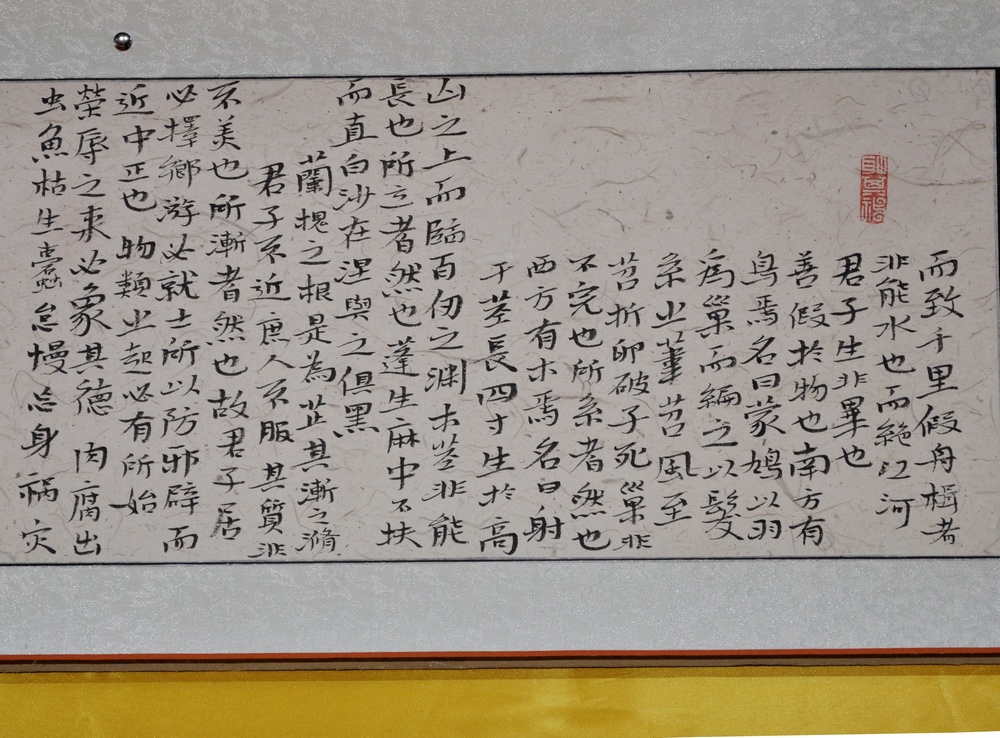 而致千里假舟楫者
非能水也而絶江河
君子生非異也
善假於物也南方有
鳥焉名曰蒙鳩以羽
為巢而編之以髮
系之葦苕風至
苕折卵破子死巢非
不完也所系者然也
西方有木焉名曰射
干莖長四寸生於高
山之上而臨百仞之淵木莖非能
長也所立者然也蓬生麻中不扶
而直白沙在涅與之俱黑
蘭槐之根是為芷其漸之滫
君子不近庶人不服其質非
不美也所漸者然也故君子居
必擇鄉游必就士所以防邪辟而
近中正也物類之起必有所始
榮辱之来必象其德肉腐出
虫魚枯生蠹怠慢忘身禍灾